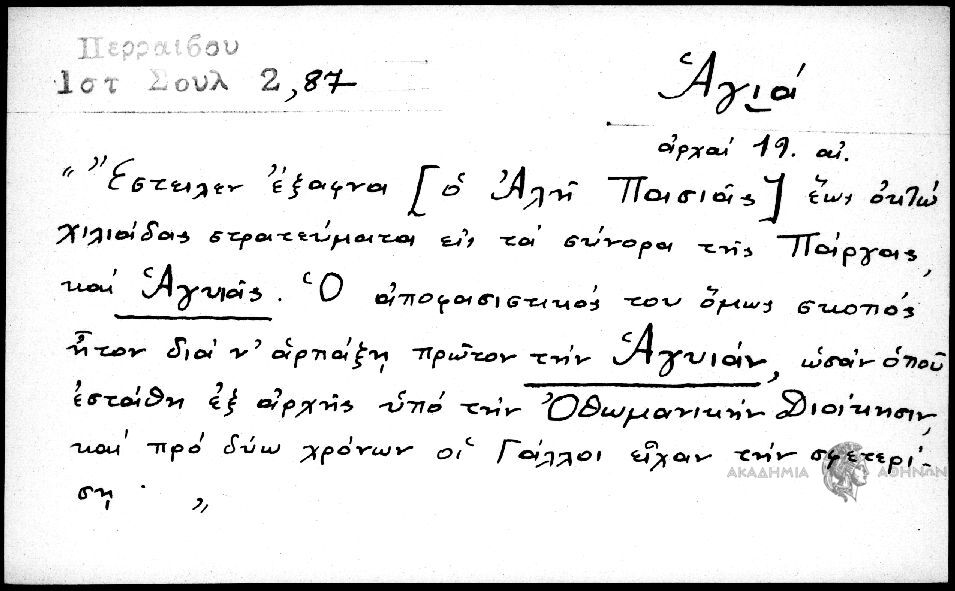 Περραιβου
Ιστ Σουλ 2,87
Ἁγιά
ἀρχαί 19. αἰ.
"Ἔστειλεν ἔξαφνα [ὁ Ἀλῆ Πασιᾶς] ἕως ὀκτώ
χιλιάδας στρατεύματα εἰς τά σύνορα τῆς Πάργας,
καί Ἁγυιᾶς. Ὁ ἀποφασιστικός του ὅμως σκοπός
ἦτον διά ν' ἁρπάξῃ πρῶτον τήν Ἁγυιάν, ὡσάν ὁποῦ
ἐστάθη ἐξ ἀρχῆς ὑπό τήν Ὀθωμανικήν Διοίκησιν,
καί πρό δύω χρόνων οἱ Γάλλοι εἶχαν τήν σφετερί-
ση . "
ΑΚΑΔΗΜΙΑ ΑΘΗΝΩΝ